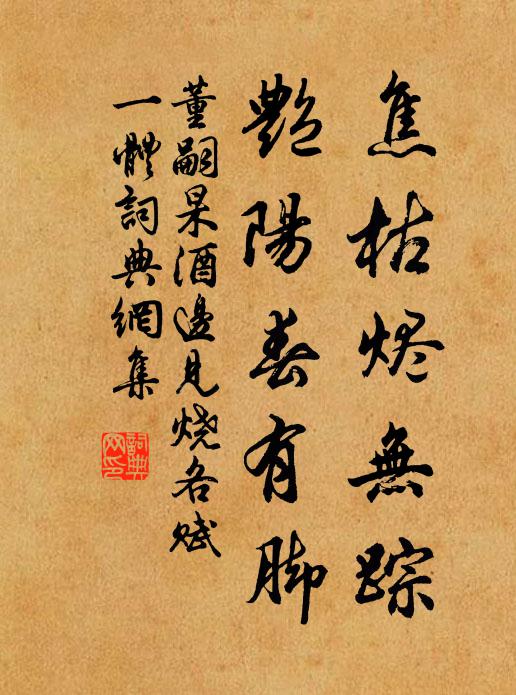 焦枯烬無踪
艷陽春有脚
董嗣杲酒邊見烧各赋
一體詞典網集
詞典網印